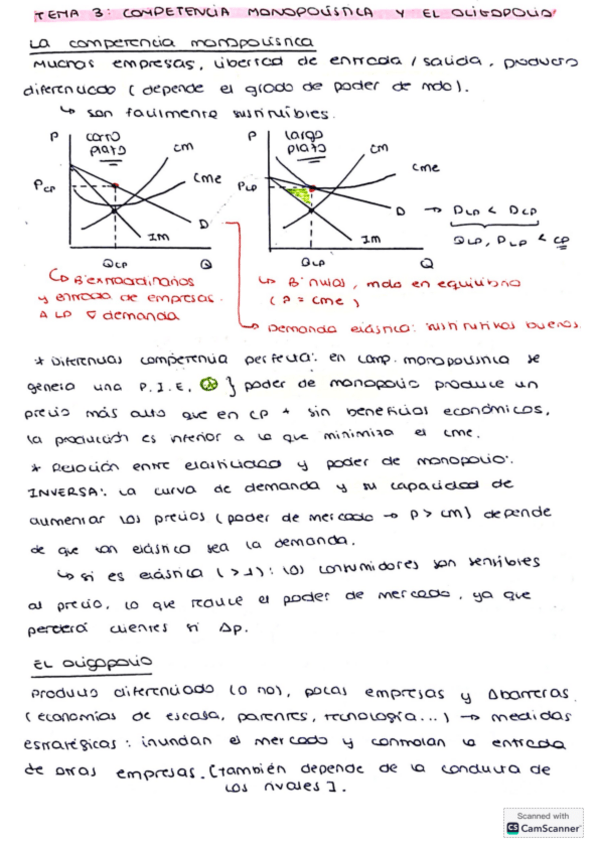 TEMA 3: COMPETENCIA MONOPOLÍSTICA Y EL OLIGOPOLIO
La competencia monopolística
Muchos empresas, libertad de entrada / salida, producto
diferenciado (depende el grado de poder de mdo).
↳ son facilmente sustituibles.
P corto plazo cm
P largo plazo cm
PCP cme
PLP cme
D
D → DLP < DCP
IM
IM
QLP, PLP < CP
QCP Q
QLP Q
↳ Bº extraordinarios
y entrada de empresas.
A LP ∇ demanda
↳ Bº nulos, mdo en equilibrio
(P = cme)
↳ Demanda elástica: sustitutivos buenos.
* Diferencias competencia perfecta: en comp. monopolística se
genera una P.I.E. } poder de monopolio produce un
precio más alto que en CP + sin beneficios económicos,
la producción es inferior a la que minimiza el cme.
* Relación entre elasticidad y poder de monopolio:
INVERSA: La curva de demanda y su capacidad de
aumentar los precios (poder de mercado → P > cm) depende
de que tan elástica sea la demanda.
↳ si es elástica (>1): los consumidores son sensibles
al precio, lo que reduce el poder de mercado, ya que
perderá clientes si Δp.
EL Oligopolio
Producto diferenciado (o no), pocas empresas y Δbarreras
(economías de escala, patentes, tecnología...) → medidas
estratégicas: inundan el mercado y controlan la entrada
de otras empresas. [también depende de la conducta de
los rivales].
Scanned with
CS CamScanner